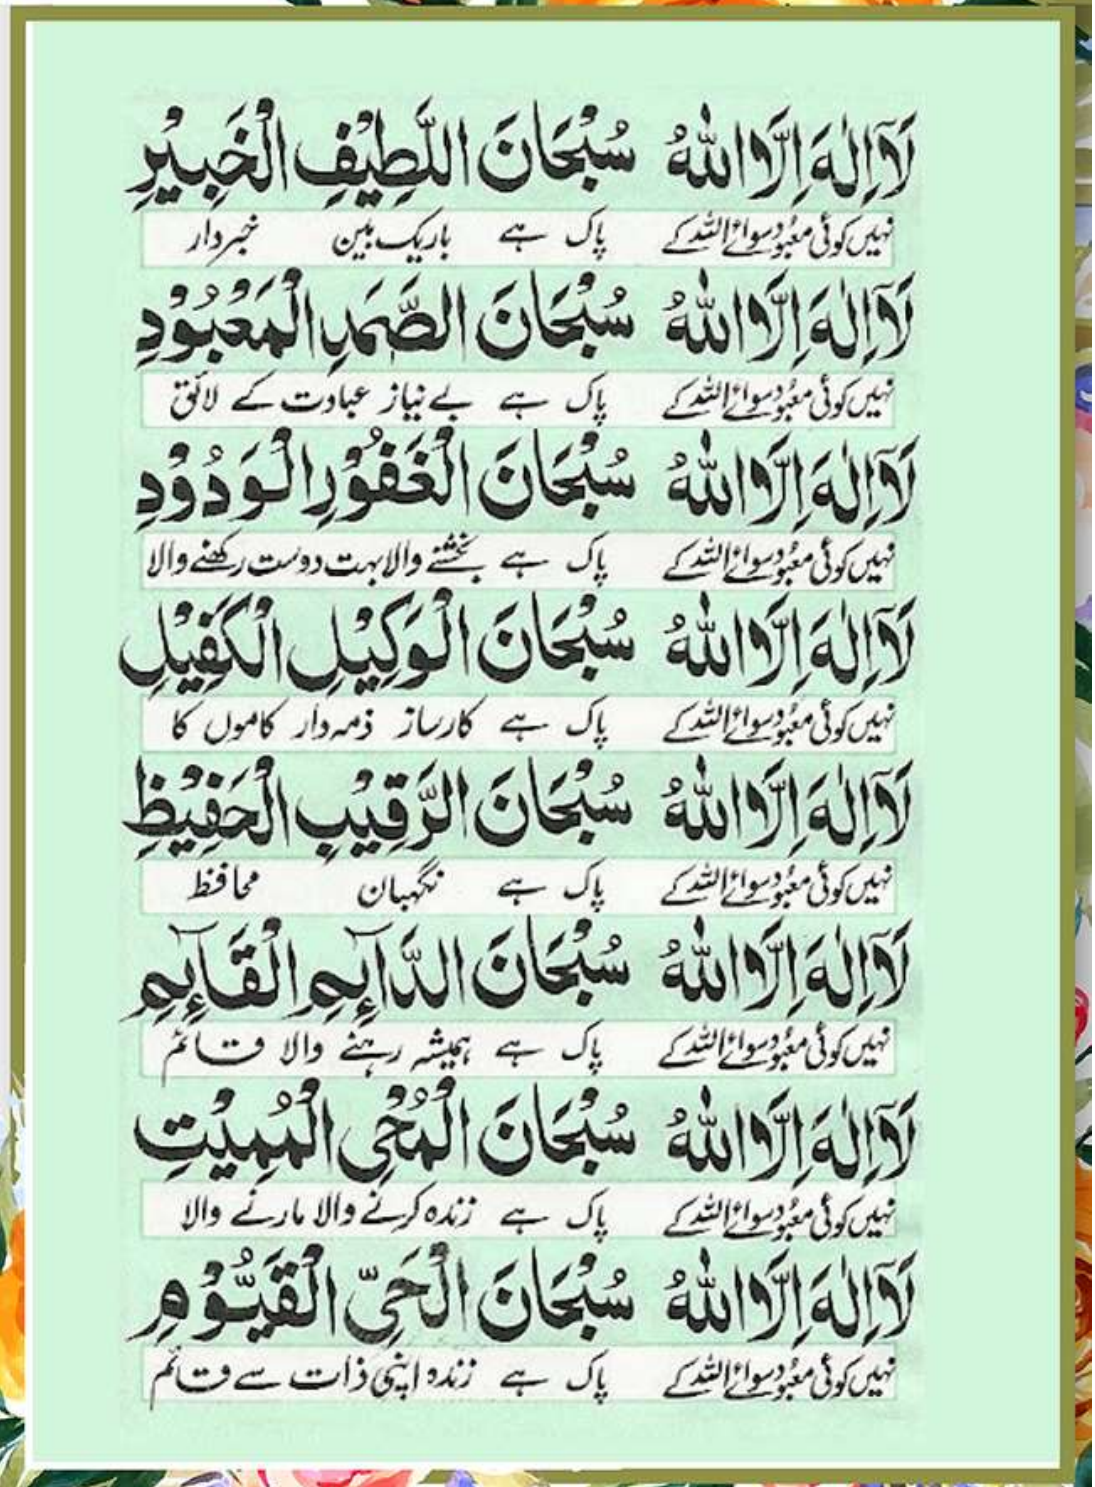 لَآ اِلٰهَ اِلَّا اللّٰهُ سُبْحَانَ اللَّطِيْفِ الْخَبِيْرِ
نہیں کوئی معبود سوائے اللہ کے پاک ہے باریک بین خبردار
لَآ اِلٰهَ اِلَّا اللّٰهُ سُبْحَانَ الصَّمَدِ الْمَعْبُوْدِ
نہیں کوئی معبود سوائے اللہ کے پاک ہے بے نیاز عبادت کے لائق
لَآ اِلٰهَ اِلَّا اللّٰهُ سُبْحَانَ الْغَفُوْرِ الْوَدُوْدِ
نہیں کوئی معبود سوائے اللہ کے پاک ہے بخشنے والا بہت دوست رکھنے والا
لَآ اِلٰهَ اِلَّا اللّٰهُ سُبْحَانَ الْوَكِيْلِ الْكَفِيْلِ
نہیں کوئی معبود سوائے اللہ کے پاک ہے کارساز ذمہ دار کاموں کا
لَآ اِلٰهَ اِلَّا اللّٰهُ سُبْحَانَ الرَّقِيْبِ الْحَفِيْظِ
نہیں کوئی معبود سوائے اللہ کے پاک ہے نگہبان محافظ
لَآ اِلٰهَ اِلَّا اللّٰهُ سُبْحَانَ الدَّآئِمِ الْقَآئِمِ
نہیں کوئی معبود سوائے اللہ کے پاک ہے ہمیشہ رہنے والا قائم
لَآ اِلٰهَ اِلَّا اللّٰهُ سُبْحَانَ الْمُحْيِ الْمُمِيْتِ
نہیں کوئی معبود سوائے اللہ کے پاک ہے زندہ کرنے والا مارنے والا
لَآ اِلٰهَ اِلَّا اللّٰهُ سُبْحَانَ الْحَيِّ الْقَيُّوْمِ
نہیں کوئی معبود سوائے اللہ کے پاک ہے زندہ اپنی ذات سے قائم